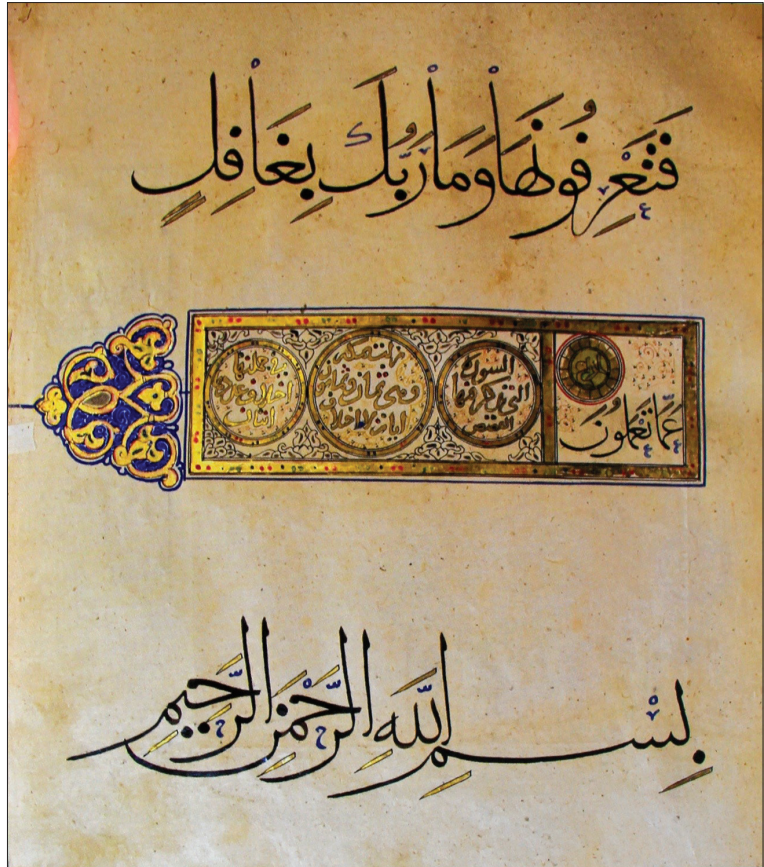 فَتَعْرِفُونَهَا وَمَا رَبُّكَ بِغَافِلٍ
عَمَّا تَعْمَلُونَ
السورة
التي يذكر فيها
القصص
وهي ثمان وثمانون
في جملتها
بِسْمِ اللَّهِ الرَّحْمَنِ الرَّحِيمِ